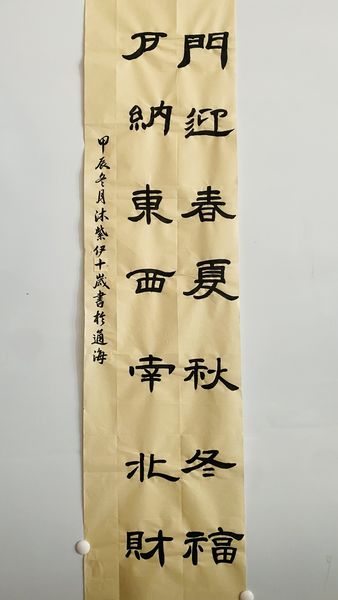 門迎春夏秋冬福
戶納東西南北財
甲辰冬月沐紫伊十歲書於通海